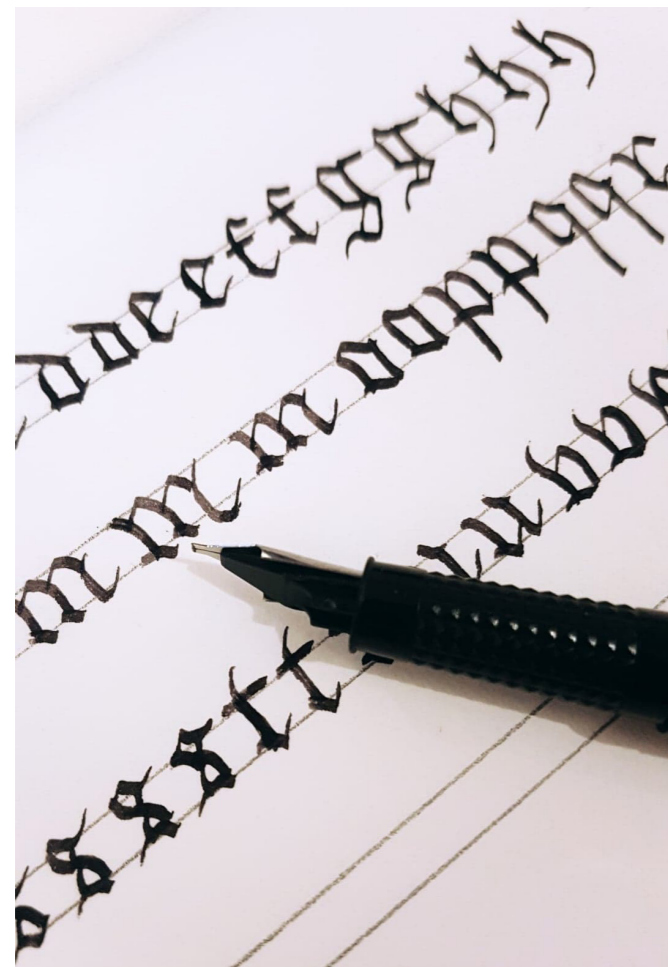 ddeeffgghhh
m m m ooppqqr
ssstt uuvv